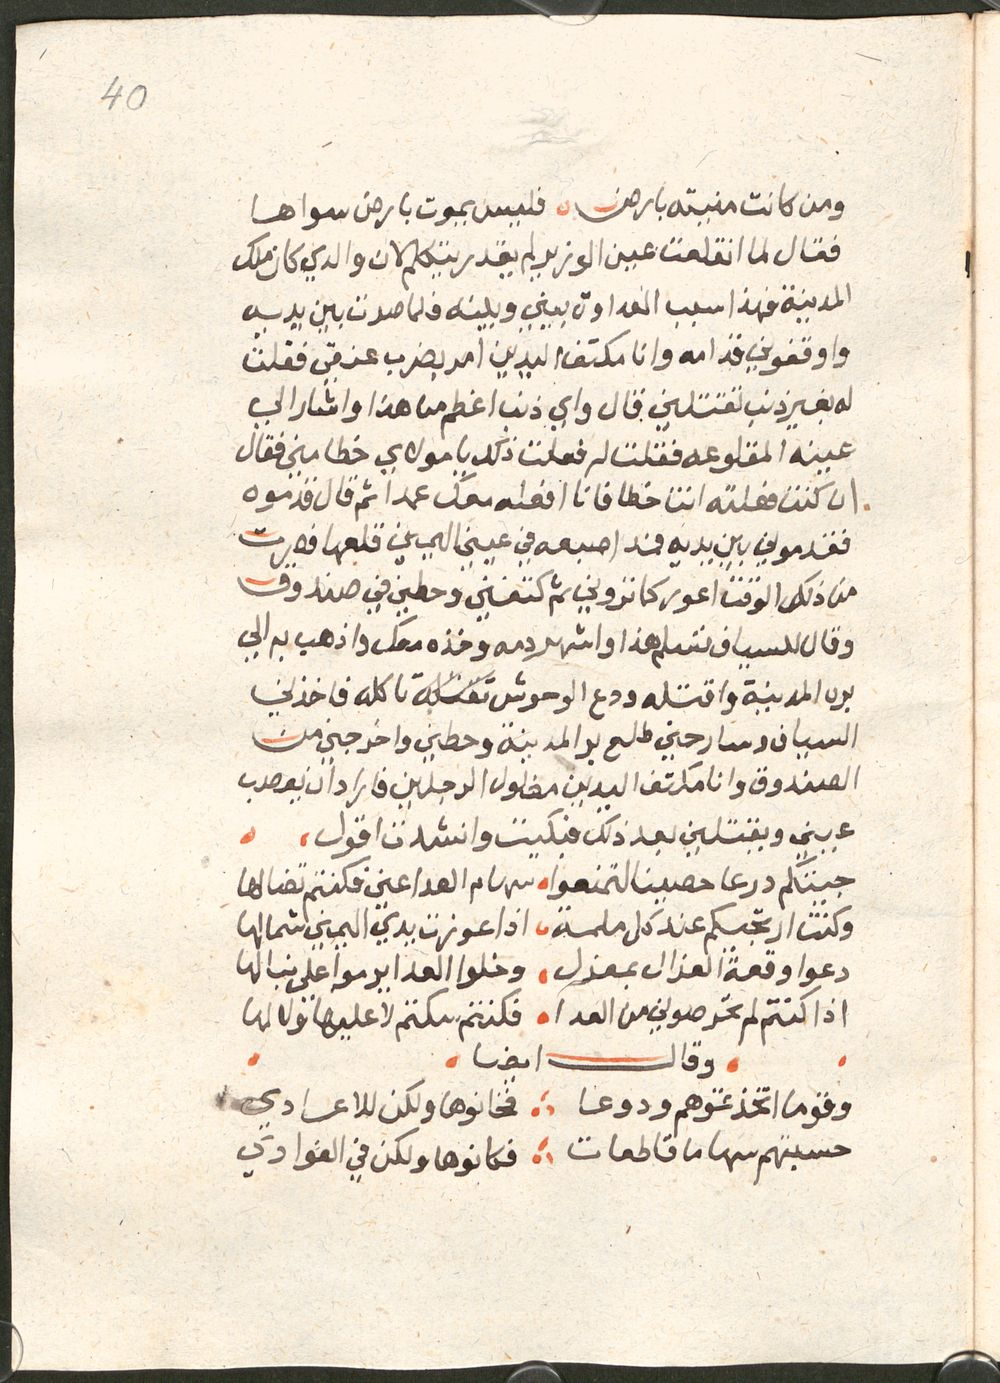 40
ومن كانت منيته بارض • فليس يموت بارض سواها
فقال لما انقلعت عين الوزير لم يقدر يتكلم لان والدي كان ملك
المدينة فهذا سبب العداوة بيني وبينه فلما صرت بين يديه
واوقفوني قدامه وانا مكتف اليدين امر بضرب عنقي فقلت
له بغير ذنب تقتلني قال واي ذنب اعظم من هذا واشار الي
عينه المقلوعه فقلت له فعلت ذلك يا مولاي خطا مني فقال
ان كنت فعلته انت خطا فانا افعله معك عمدا ثم قال قدموه
فقدموني بين يديه فمد اصبعه في عيني اليمين قلعها فصرت
من ذلك الوقت اعور كما تروني ثم كتفني وحطني في صندوق
وقال للسياف تسلم هذا واشهر دمه وخذه معك واذهب به الي
برا المدينة واقتله ودع الوحوش تاكله فاخذني
السياف وسار حتي طلع بر المدينة وحطني واخرجني من
الصندوق وانا مكتف اليدين مغلول الرجلين فاراد ان يعصب
عيني ويقتلني بعد ذلك فبكيت وانشدت اقول •
جبتكم درعا حصينا لتمنعوا • سهام العدا عني فكنتم نصالها
وكنت ارتجيكم عند كل ملمة • اذا عوزت يدي اليمين شمالها
دعوا وقعة العذال بمعزل • وخلوا العدا يرموا علي نبالها
اذا كنتم لم تحرصوني من العدا • فكنتم سكتم لا عليها ولا لها
• وقال ايضا •
وقوما اتخذتموهم ودوعا ؞ فكانوها ولكن للاعادي
حسبتهم سهاما قاطعات ؞ فكانوها ولكن في الفوادي